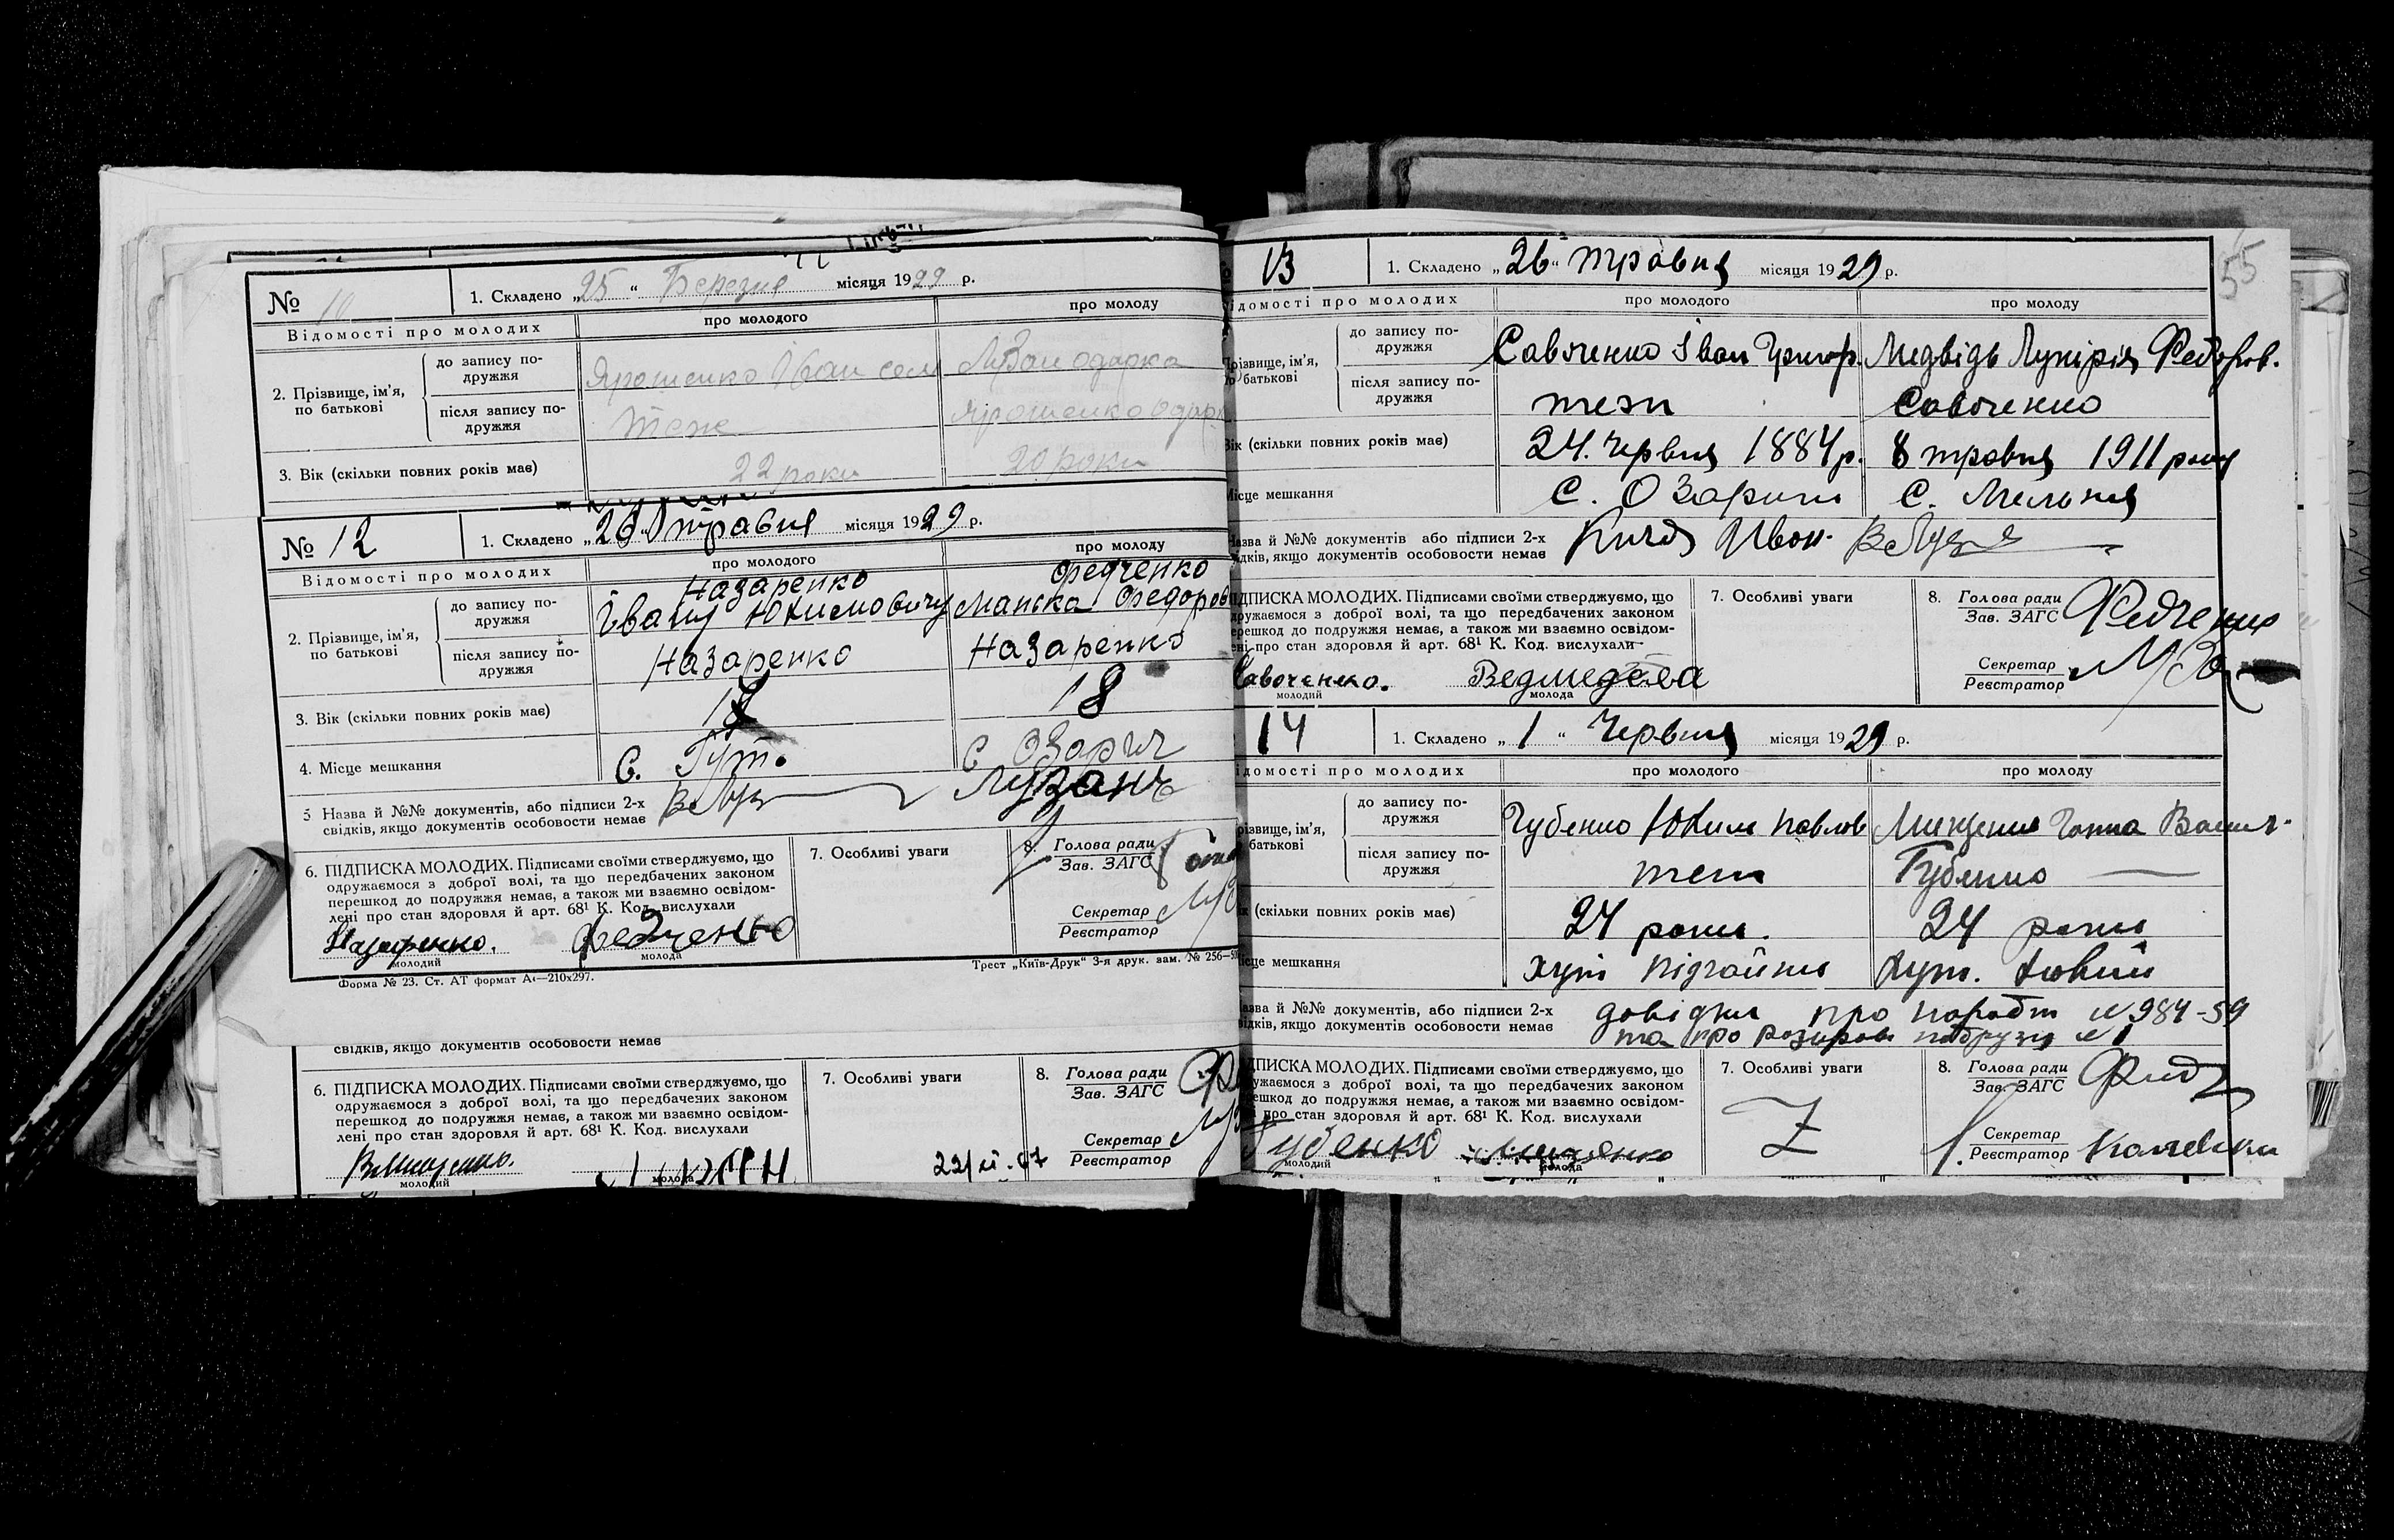 № 10 1. Складено „25“ Березня місяця 1929 р.
Відомості про молодих про молодого про молоду
2. Прізвище, ім’я, по батькові
до запису по-
дружжя
Ярошенко Іван Одарка
після запису по-
дружжя
теж Ярошенко Одар
3. Вік (скільки повних років має) 22 роки 20 роки
№ 12 1. Складено „26“ травня місяця 1929 р.
Відомості про молодих про молодого про молоду
2. Прізвище, ім’я,
по батькові
до запису по-
дружжя
Назаренко Федченко
Івану Юхимовичу Федоров
після запису по-
дружжя
Назаренко Назаренко
3. Вік (скільки повних років має) 18
4. Місце мешкання с. Гут. с. Озарич
5 Назва й №№ документів, або підписи 2-х
свідків, якщо документів особовости немає
Лузань
6. ПІДПИСКА МОЛОДИХ. Підписами своїми стверджуємо, що
одружаємося з доброї волі, та що передбачених законом
перешкод до подружжя немає, а також ми взаємно освідом-
лені про стан здоровля й арт. 68¹ К. Код. вислухали
Назаренко. Федченко
молодий молода
7. Особливі уваги
8. Голова ради
Зав. ЗАГС
Секретар
Реєстратор
Форма № 23. Ст. АТ формат А4—210х297.
Трест „Київ-Друк“ 3-я друк. зам. № 256—
свідків, якщо документів особовости немає
6. ПІДПИСКА МОЛОДИХ. Підписами своїми стверджуємо, що
одружаємося з доброї волі, та що передбачених законом
перешкод до подружжя немає, а також ми взаємно освідом-
лені про стан здоровля й арт. 68¹ К. Код. вислухали
молодий молода
7. Особливі уваги
8. Голова ради
Зав. ЗАГС
Секретар
Реєстратор
55
13 1. Складено „26“ травня місяця 1929 р.
ідомості про молодих про молодого про молоду
різвище, ім’я,
батькові
до запису по-
дружжя
Савченко Іван Григор. Медвідь Лукірія Федоров.
після запису по-
дружжя
теж Савченко
ік (скільки повних років має) 24. червня 1884 р. 8 травня 1911 року
ісце мешкання с. Озаричи с. Мельня
азва й №№ документів або підписи 2-х
ідків, якщо документів особовости немає
Іван.
ІДПИСКА МОЛОДИХ. Підписами своїми стверджуємо, що
дружаємося з доброї волі, та що передбачених законом
ерешкод до подружжя немає, а також ми взаємно освідом-
ені про стан здоровля й арт. 68¹ К. Код. вислухали
Савченко. Ведмедева
молодий молода
7. Особливі уваги
8. Голова ради
Зав. ЗАГС
Федченко
Секретар
Реєстратор
14 1. Складено „1“ Червня місяця 1929 р.
ідомості про молодих про молодого про молоду
різвище, ім’я,
батькові
до запису по-
дружжя
Губенко Юхим Павлов Мищенко Ганна Васил.
після запису по-
дружжя
теж Губенко
(скільки повних років має) 24 роки. 24 роки
сце мешкання хут Підгайни Хут. Новий
азва й №№ документів, або підписи 2-х
ідків, якщо документів особовости немає
довідки про народж № 984-59
та про розірв. подружжя № 1
ДПИСКА МОЛОДИХ. Підписами своїми стверджуємо, що
ужаємося з доброї волі, та що передбачених законом
ешкод до подружжя немає, а також ми взаємно освідом-
про стан здоровля й арт. 68¹ К. Код. вислухали
Губенко Мищенко
молодий молода
7. Особливі уваги
Z
8. Голова ради
Зав. ЗАГС
Секретар
Реєстратор